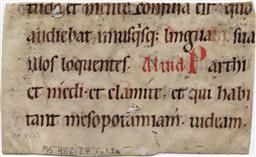 et mente confusa est. quo
audiebat unusqsq; linguam sua
illos loquentes. Alleluia Parthi
et medi. et elamite. et qui habi
tant mesopotamiam. iudeam.
MS 482.27